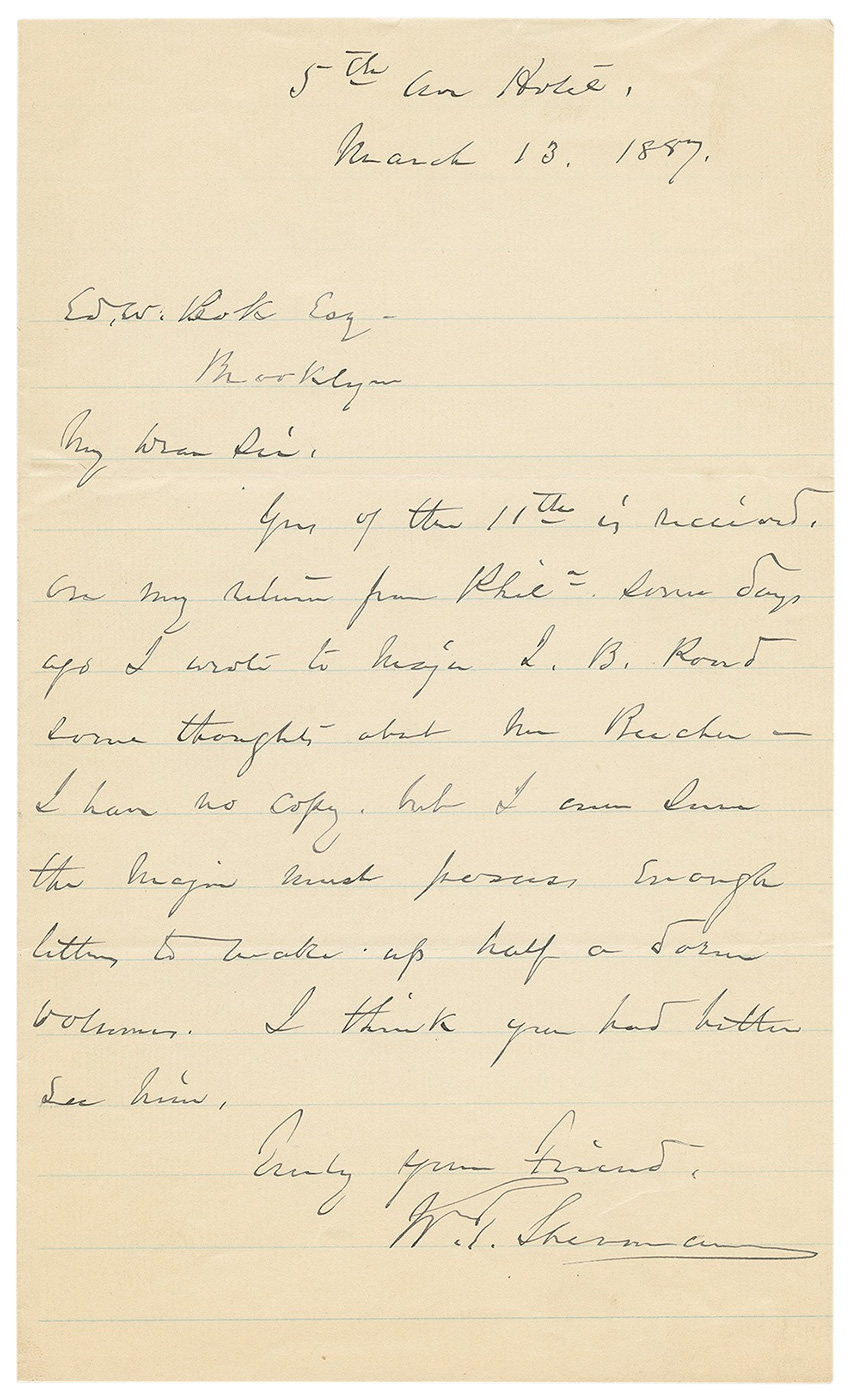 5th Ave Hotel.
March 13. 1887.
Ed. W. Bok Esq -
Brooklyn
My Dear Sir.
Yrs of the 11th is received.
On my return from Phila. Some days
ago I wrote to Major J. B. Pond
some thoughts about Mr Beecher —
I have no copy. but I am Sure
the Major must possess Enough
letters to make up half a dozen
volumes. I think you had better
See him.
Truly your Friend.
W. T. Sherman